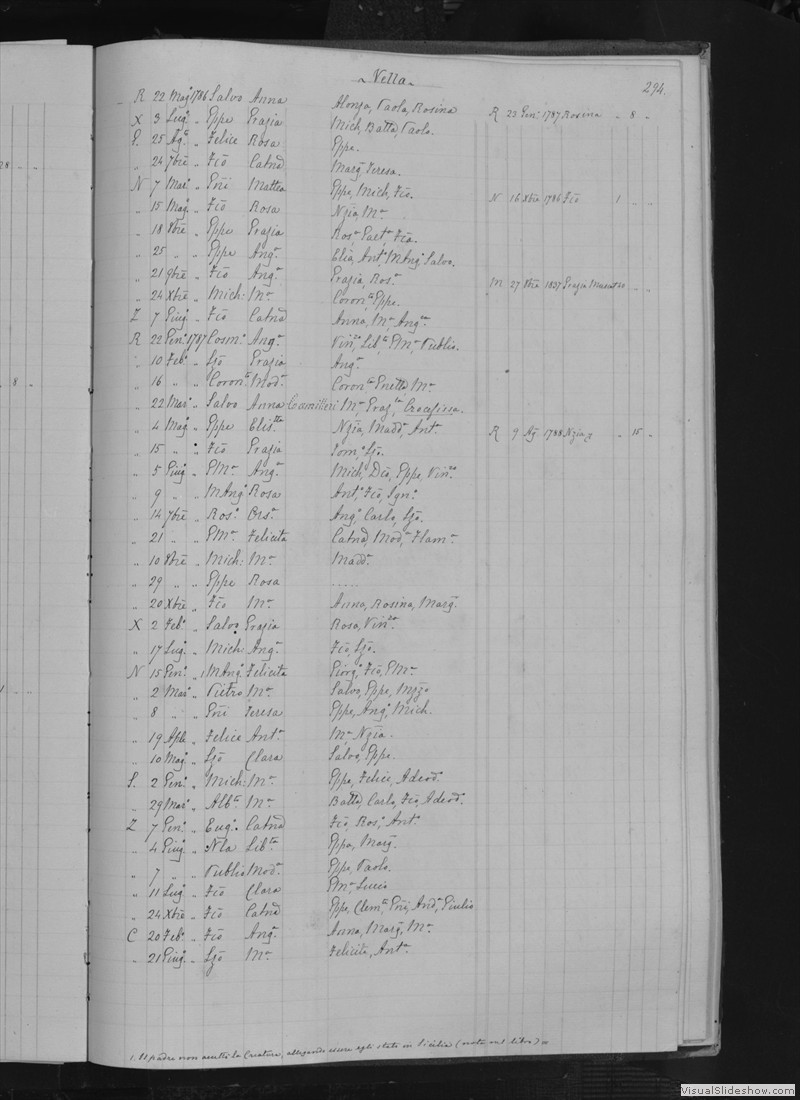 Vella
294.
R 22 Mag.º 1786 Salvo Anna Alonza, Paola, Rosina R 23 Gen. 1787 Rosina " 8 "
X 3 Lug.º " Gppe Grazia Mich, Batta, Paolo.
S. 25 Ag.º " Felice Rosa Gppe.
" 24 7bre " Fco Catnã Marg.ª Teresa.
N 7 Mar.º " Gñi Mattea Gppe, Mich, Fco. N 16 Xbre 1786 Fco 1 " "
" 15 Mag.º " Fco Rosa Nzia, M.ª
" 18 8bre " Gppe Grazia Ros.ª Gaet.ª Fca.
" 25 " " Gppe Ang.ª Elia, Ant.º, M Ang.º Salvo.
" 21 9bre " Fco Ang.ª Grazia, Ros.ª M 27 8bre 1837 Grazia
" 24 Xbre " Mich: M.ª Coron.ta Gppe.
Z 7 Giug.º " Fco Catnã Anna, M.ª Ang.ª
R 22 Gen.º 1787 Cosm.º Ang.ª Vin.zo, Lib.ta G M.ª Publio.
" 10 Feb.º " Lzo Grazia Ang.ª
" 16 " " Coron.to Mod.ª Coron.ta M.ª
" 22 Mar.º " Salvo Anna Camilleri M.ª Graz.ta Crocefissa.
" 4 Mag.º " Gppe Elis.tta Nzia, Madd.ª, Ant.ª R 9 Ag. 1788 Nzia " 15 "
" 15 " " Fco Grazia Dom.º Lzo.
" 5 Giug.º " GM.ª Ang.ª Mich, Dco, Gppe, Vin.zo
" 9 " " MAng.º Rosa Ant.º, Fco, Ign.º
" 14 7bre " Ros.º Ors.ª Ang.º Carlo, Lzo.
" 21 " " GM.ª Felicita Catnã, Mod.ª, Flam.ª
" 10 8bre " Mich: M.ª Madd.ª
" 29 " " Gppe Rosa .....
" 20 Xbre " Fco M.ª Anna, Rosina, Marg.ª
X 2 Feb.º " Salvo Grazia Rosa, Vin.za
" 17 Lug.º " Mich Ang.ª Fco, Lzo.
N 15 Gen.º " 1 MAng.º Felicita Giorg.º, Fco, GM.ª
" 2 Mar.º " Pietro M.ª Salvo, Gppe,
" 8 " " Gñi Teresa Gppe, Ang.º, Mich.
" 19 Aple " Felice Ant.ª M.ª Nzia.
" 10 Mag.º " Lzo Clara Salvo, Gppe.
S. 2 Gen.º " Mich: M.ª Gppe, Felice, Adeod.º
" 29 Mar.º " Alb.to M.ª Batta, Carlo, Fco, Adeod.º
Z 7 Gen.º " Eug.º Catnã Fco, Ros.º Ant.º
" 4 Giug.º " Nla Lib.ta Gppa, Marg.ª
" 7 " " Publio Mod.ª Gppe, Paolo.
" 11 Lug.º " Fco Clara GM.ª Lucio
" 24 Xbre " Fco Catnã Gppe, Clem.te, Gñi, And.ª, Giulio
C 20 Feb.º " Fco Ang.ª Anna, Marg.ª, M.ª
" 21 Giug.º " Lzo M.ª Felicita, Ant.ª
1. Il padre non accetta la Creatura, allegando essere egli stato in Sicilia (nota nel libro)
28 "
8 "
1 "
VisualSlideshow.com